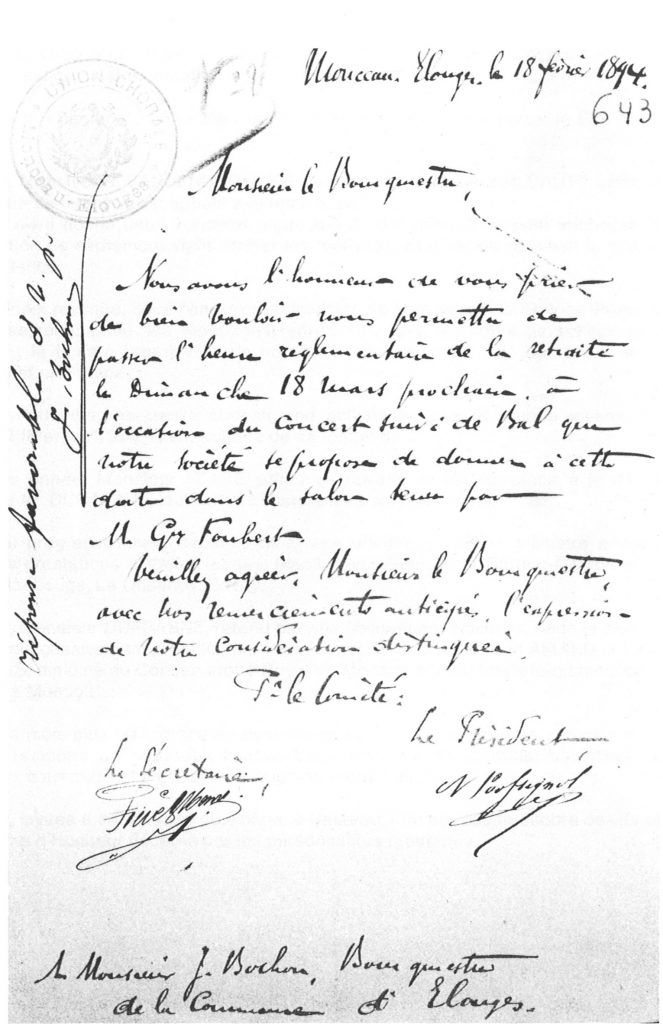 Monceau-Elouges, le 18 février 1894.
643
UNION CHORALE
Monceau-Elouges
Monsieur le Bourgmestre,
Nous avons l'honneur de vous prier
de bien vouloir nous permettre de
passer l'heure règlementaire de la retraite
le Dimanche 18 mars prochain, à
l'occasion du Concert suivi de Bal que
notre société se propose de donner à cette
date dans le salon tenu par
M Gve Foubert
Veuillez agréer, Monsieur le Bourgmestre,
avec nos remerciements anticipés, l'expression
de notre Considération distinguée.
Pr le Comité:
Le Président,
Le Secrétaire,
réponse favorable S. V. p.
J. Bochon
A Monsieur J. Bochon, Bourgmestre
de la Commune d'Elouges.